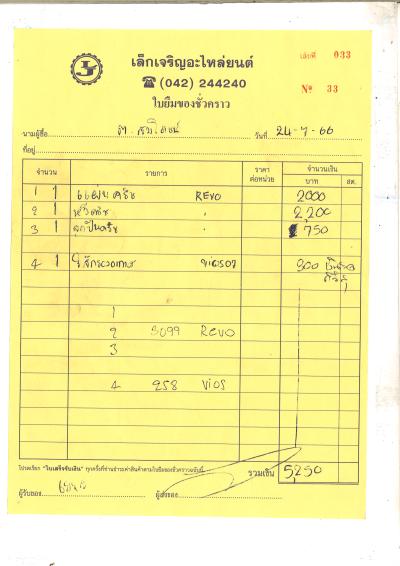 เล็กเจริญอะไหล่ยนต์
เล่มที่ 033
☎ (042) 244240
ใบยืมของชั่วคราว
Nº 33
นามผู้ซื้อ
วันที่ 24-7-66
ที่อยู่
จำนวน รายการ ราคาต่อหน่วย จำนวนเงิน บาท สต.
1 1 แผ่นครัช REVO 2000
2 1 หวีครัช " 2,200
3 1 ลูกปืนครัช " 750
4 1 VIOS07 300
1
2 3099 REVO
3
4 258 VIOS
โปรดเรียก "ใบเสร็จรับเงิน" ทุกครั้งที่ท่านชำระค่าสินค้าตามใบยืมของชั่วคราวฉบับนี้
รวมเงิน 5,250
ผู้รับของ ผู้ส่งของ